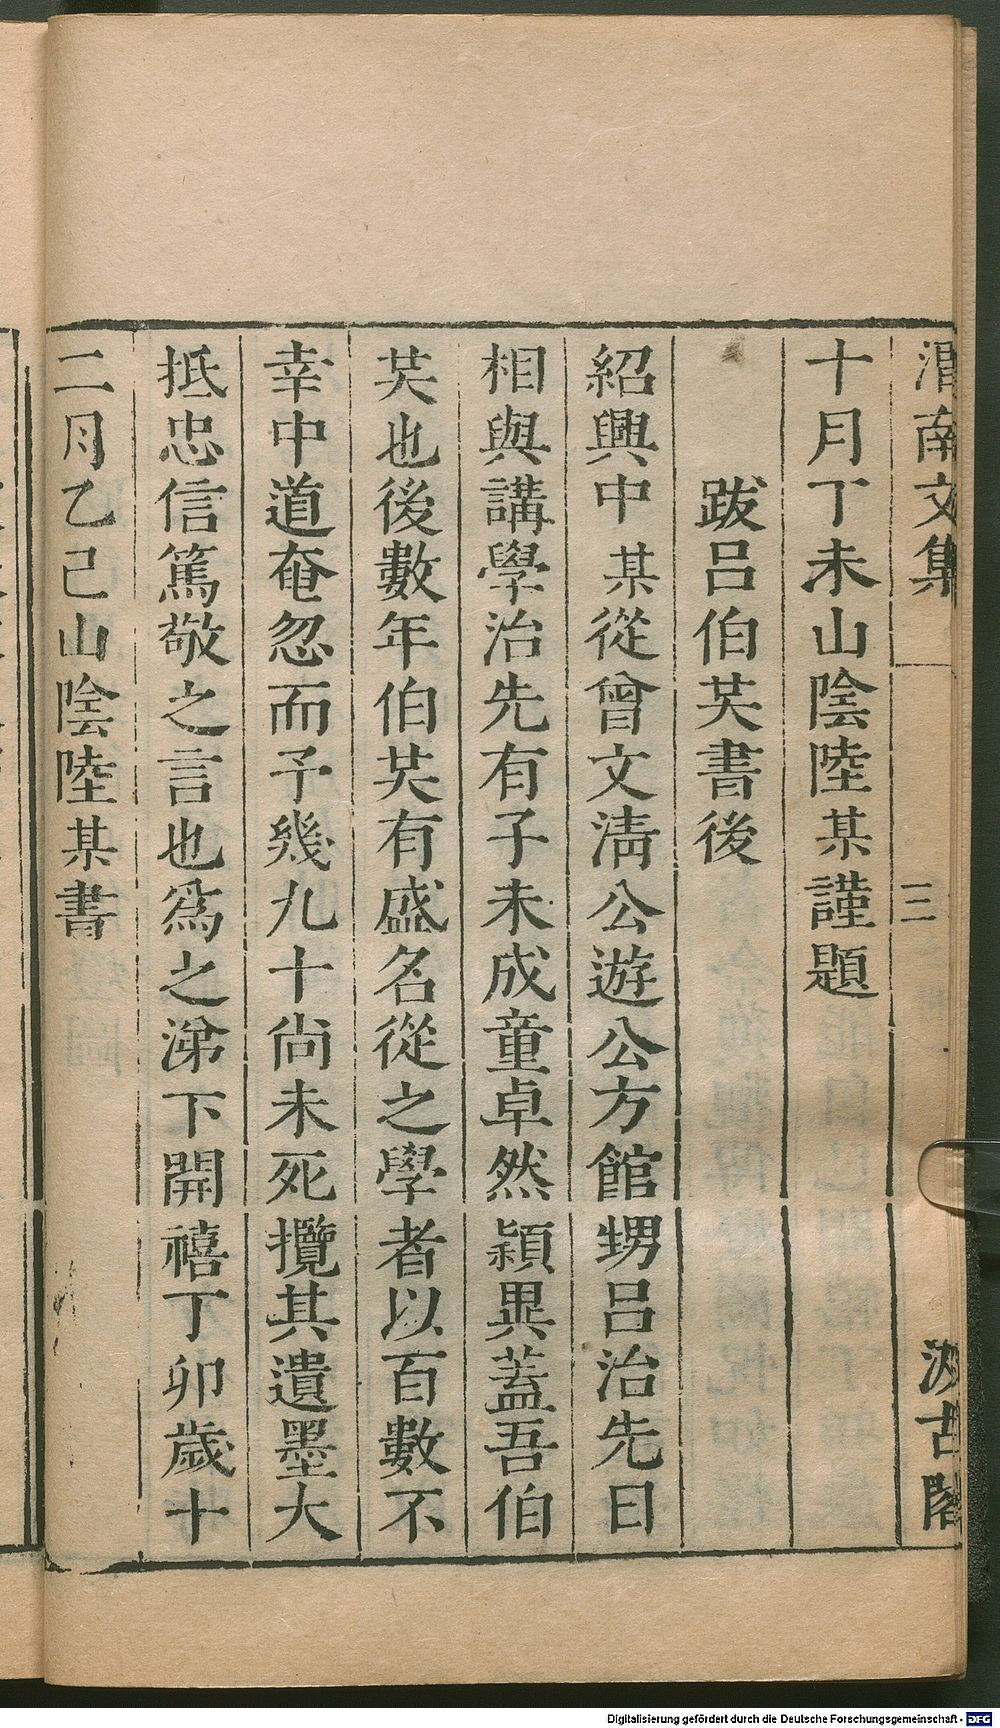 渭南文集 三 汲古閣
十月丁未山陰陸某謹題
跋呂伯共書後
紹興中某從曾文淸公遊公方館甥呂治先日
相與講學治先有子未成童卓然穎異蓋吾伯
共也後數年伯共有盛名從之學者以百數不
幸中道奄忽而予幾九十尚未死攬其遺墨大
抵忠信篤敬之言也爲之涕下開禧丁卯歲十
二月乙己山陰陸某書
Digitalisierung gefördert durch die Deutsche Forschungsgemeinschaft - DFG